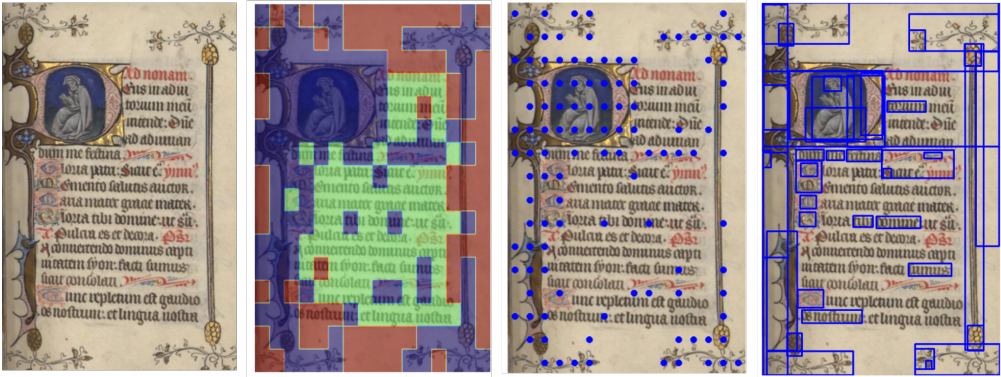 Ad nonam.
Deus in adiu
torium meū
intende. Dñe
ad adiuuan
dum me festina.
Gloria patri. Sicut e.
Memento salutis auctor.
Maria mater gracie mater
Gloria tibi domine. ut sū.
es et decora.
conuertendo dominus capti
uitatem syon: facti sumus
sicut consolati.
Tunc repletum est gaudio
os nostrum: et lingua nostra